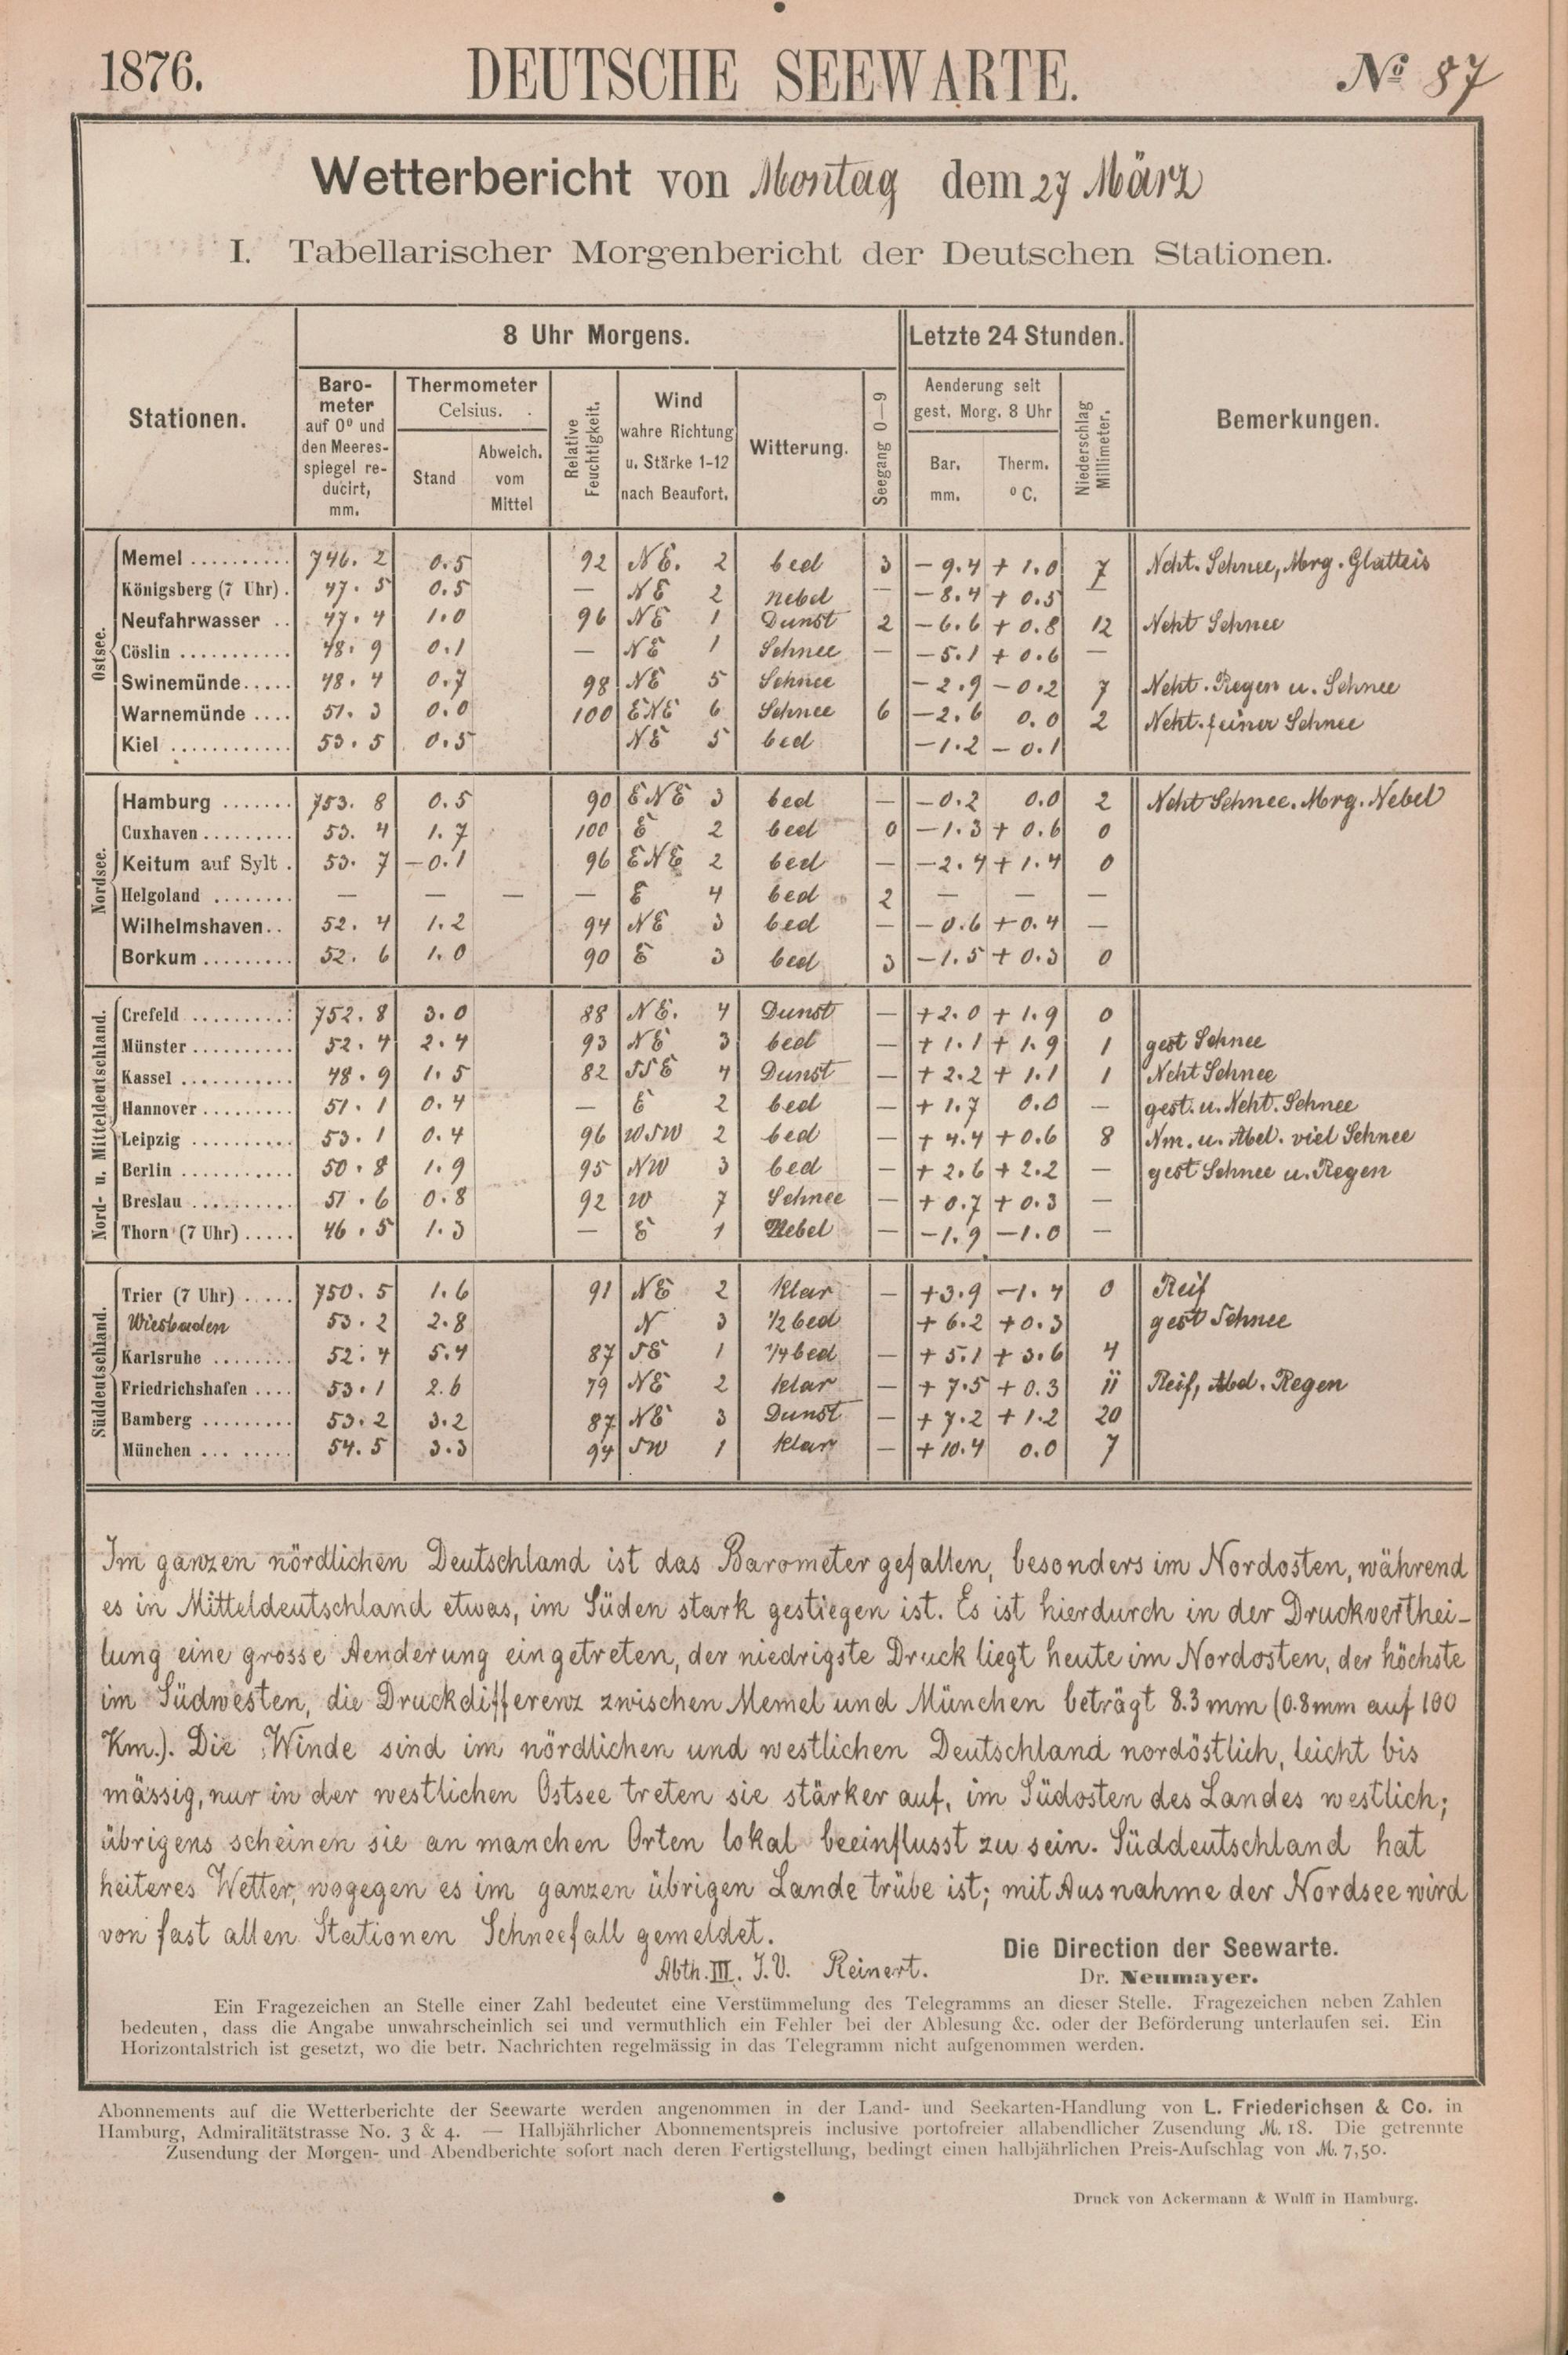 1876. DEUTSCHE SEEWARTE. No 87
Wetterbericht von Montag dem 27 März
I. Tabellarischer Morgenbericht der Deutschen Stationen.
Stationen. 8 Uhr Morgens. Letzte 24 Stunden. Bemerkungen.
Barometer auf 0º und den Meeresspiegel reducirt, mm. Thermometer Celsius. Stand Abweich. vom Mittel Relative Feuchtigkeit. Wind wahre Richtung u. Stärke 1-12 nach Beaufort. Witterung. Seegang 0—9 Aenderung seit gest. Morg. 8 Uhr Bar. mm. Therm. º C. Niederschlag Millimeter.
Ostsee.
Memel 746.2 0.5 92 NE. 2 bed 3 −9.4 +1.0 7 Ncht. Schnee, Mrg. Glatteis
Königsberg (7 Uhr) 47.5 0.5 — NE 2 Nebel — −8.4 +0.5 —
Neufahrwasser 47.4 1.0 96 NE 1 Dunst 2 −6.6 +0.8 12 Ncht Schnee
Cöslin 48.9 0.1 — NE 1 Schnee — −5.1 +0.6 —
Swinemünde 48.4 0.7 98 NE 5 Schnee −2.9 −0.2 7 Ncht. Regen u. Schnee
Warnemünde 51.3 0.0 100 ENE 6 Schnee 6 −2.6 0.0 2 Ncht. feiner Schnee
Kiel 53.5 0.5 NE 5 bed −1.2 −0.1
Nordsee.
Hamburg 753.8 0.5 90 ENE 3 bed — −0.2 0.0 2 Ncht Schnee. Mrg. Nebel
Cuxhaven 53.4 1.7 100 E 2 bed 0 −1.3 +0.6 0
Keitum auf Sylt 53.7 −0.1 96 ENE 2 bed — −2.4 +1.4 0
Helgoland — — — — E 4 bed 2 — — —
Wilhelmshaven 52.4 1.2 94 NE 3 bed — −0.6 +0.4 —
Borkum 52.6 1.0 90 E 3 bed 3 −1.5 +0.3 0
Nord- u. Mitteldeutschland.
Crefeld 752.8 3.0 88 NE. 4 Dunst — +2.0 +1.9 0
Münster 52.4 2.4 93 NE 3 bed — +1.1 +1.9 1 gest Schnee
Kassel 48.9 1.5 82 SSE 4 Dunst — +2.2 +1.1 1 Ncht Schnee
Hannover 51.1 0.4 — E 2 bed — +1.7 0.0 — gest. u. Ncht. Schnee
Leipzig 53.1 0.4 96 WSW 2 bed — +4.4 +0.6 8 Nm. u. Abd. viel Schnee
Berlin 50.8 1.9 95 NW 3 bed — +2.6 +2.2 — gest Schnee u. Regen
Breslau 51.6 0.8 92 W 7 Schnee — +0.7 +0.3 —
Thorn (7 Uhr) 46.5 1.3 — E 1 Nebel — −1.9 −1.0 —
Süddeutschland.
Trier (7 Uhr) 750.5 1.6 91 NE 2 klar — +3.9 −1.4 0 Reif
Wiesbaden 53.2 2.8 N 3 1/2 bed +6.2 +0.3 gest Schnee
Karlsruhe 52.4 5.4 87 SE 1 1/4 bed — +5.1 +3.6 4
Friedrichshafen 53.1 2.6 79 NE 2 klar — +7.5 +0.3 11 Reif, Abd. Regen
Bamberg 53.2 3.2 87 NE 3 Dunst — +7.2 +1.2 20
München 54.5 3.3 94 SW 1 klar — +10.4 0.0 7
Im ganzen nördlichen Deutschland ist das Barometer gefallen, besonders im Nordosten, während
es in Mitteldeutschland etwas, im Süden stark gestiegen ist. Es ist hierdurch in der Druckverthei-
lung eine grosse Aenderung eingetreten, der niedrigste Druck liegt heute im Nordosten, der höchste
im Südwesten, die Druckdifferenz zwischen Memel und München beträgt 8.3 mm (0.8 mm auf 100
Km.). Die Winde sind im nördlichen und westlichen Deutschland nordöstlich, leicht bis
mässig, nur in der westlichen Ostsee treten sie stärker auf, im Südosten des Landes westlich;
übrigens scheinen sie an manchen Orten lokal beeinflusst zu sein. Süddeutschland hat
heiteres Wetter, wogegen es im ganzen übrigen Lande trübe ist; mit Ausnahme der Nordsee wird
von fast allen Stationen Schneefall gemeldet.
Abth. III. I.V. Reinert.
Die Direction der Seewarte.
Dr. Neumayer.
Ein Fragezeichen an Stelle einer Zahl bedeutet eine Verstümmelung des Telegramms an dieser Stelle. Fragezeichen neben Zahlen
bedeuten, dass die Angabe unwahrscheinlich sei und vermuthlich ein Fehler bei der Ablesung &c. oder der Beförderung unterlaufen sei. Ein
Horizontalstrich ist gesetzt, wo die betr. Nachrichten regelmässig in das Telegramm nicht aufgenommen werden.
Abonnements auf die Wetterberichte der Seewarte werden angenommen in der Land- und Seekarten-Handlung von L. Friederichsen & Co. in
Hamburg, Admiralitätstrasse No. 3 & 4. — Halbjährlicher Abonnementspreis inclusive portofreier allabendlicher Zusendung M. 18. Die getrennte
Zusendung der Morgen- und Abendberichte sofort nach deren Fertigstellung, bedingt einen halbjährlichen Preis-Aufschlag von M. 7,50.
Druck von Ackermann & Wulff in Hamburg.